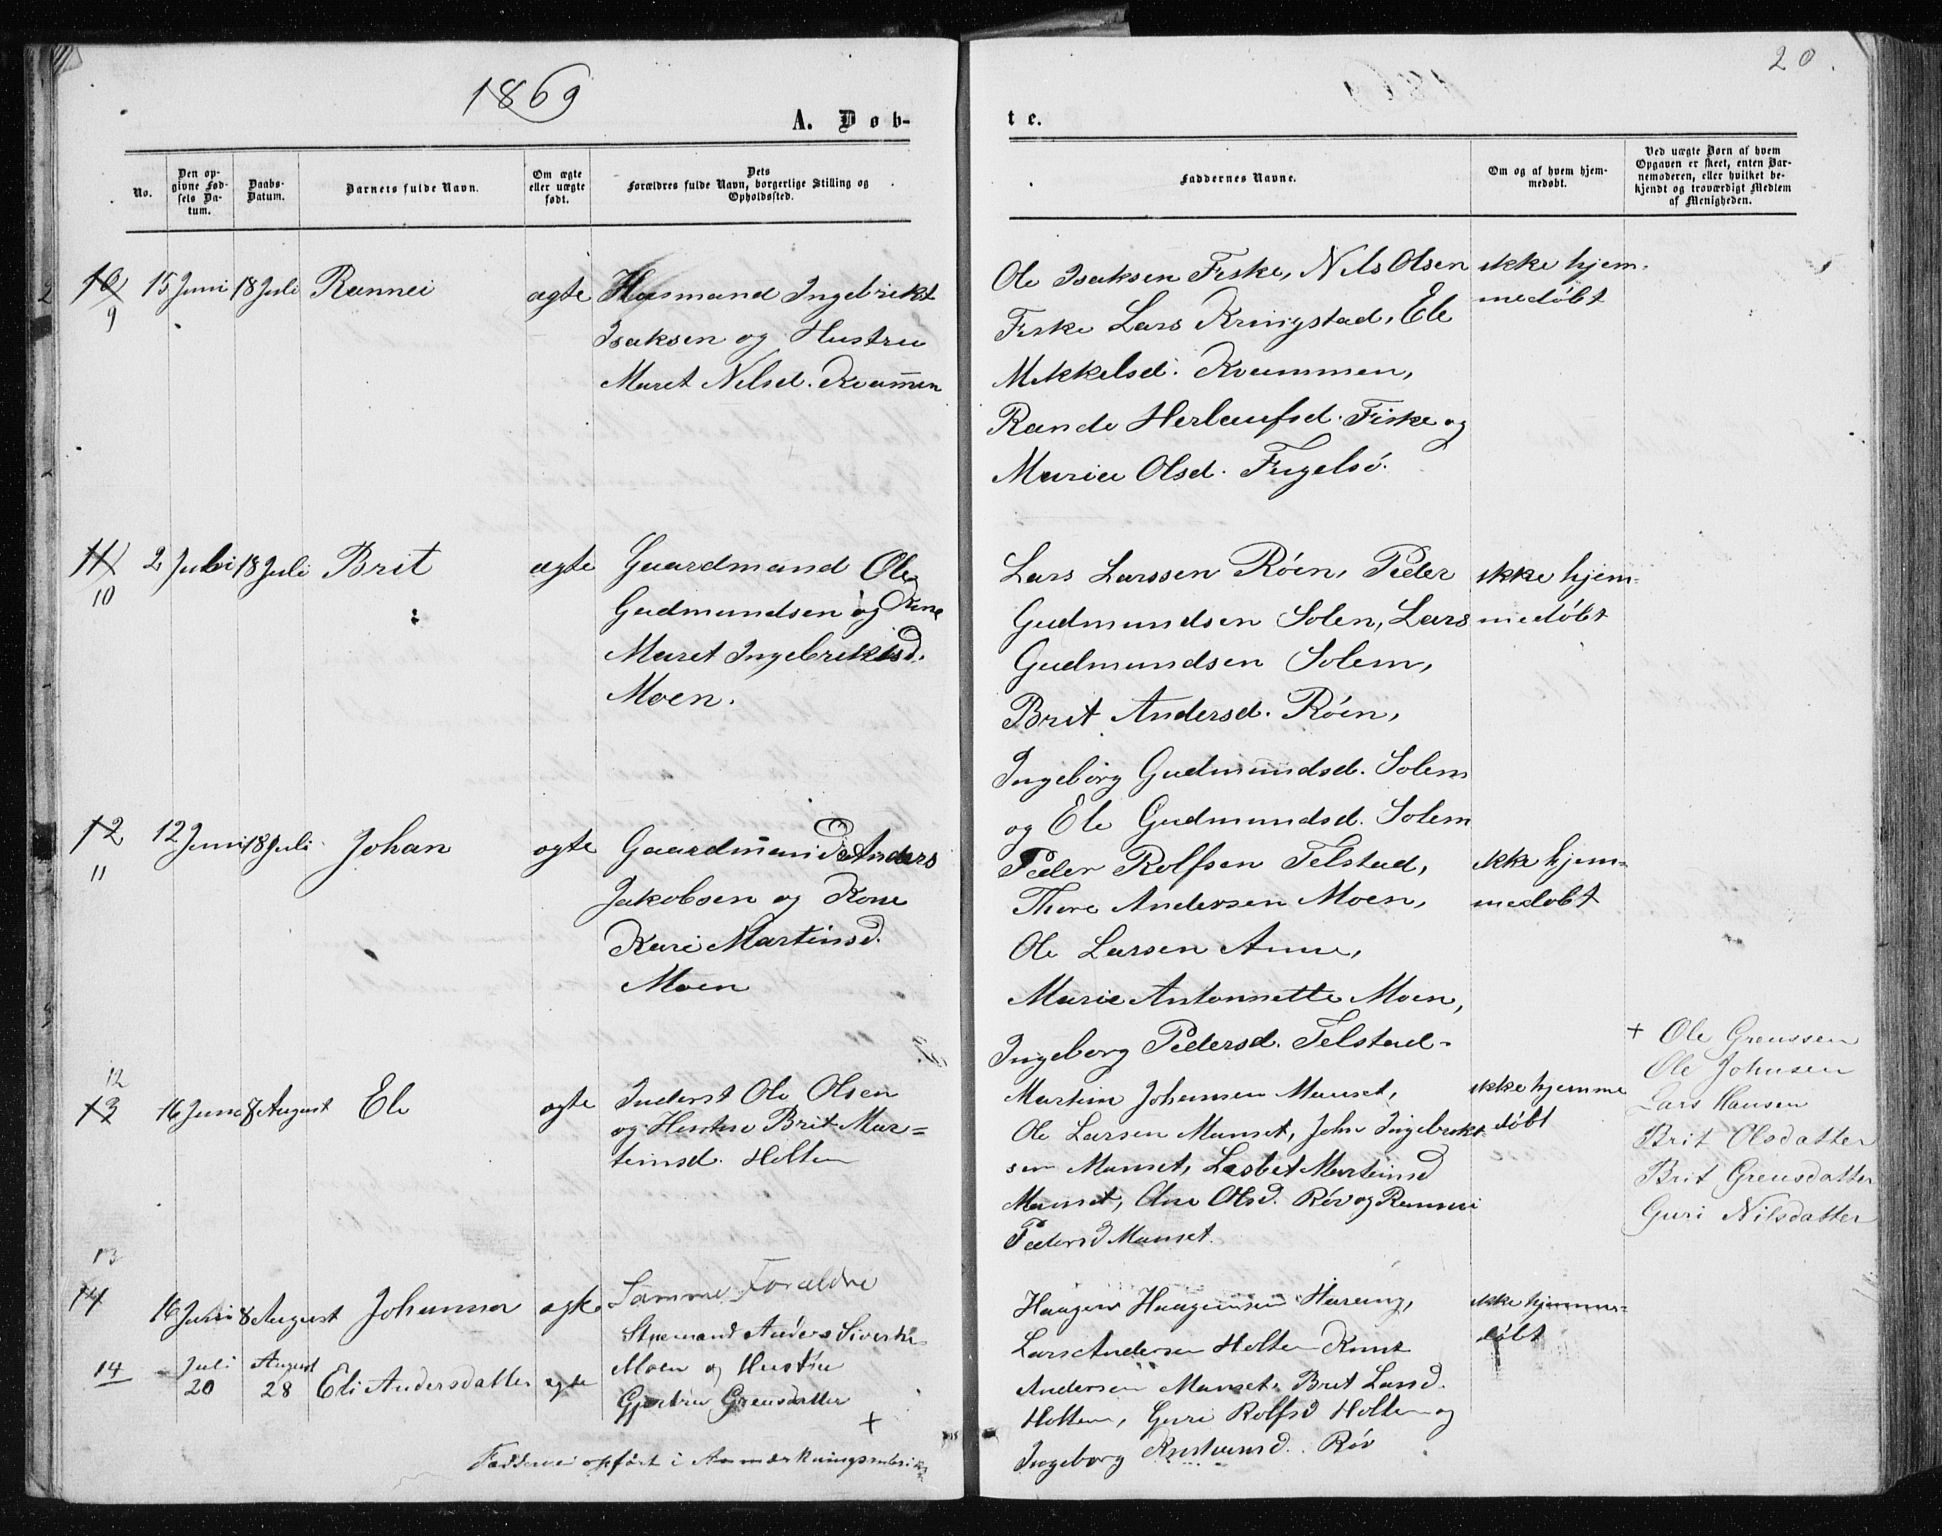 1869
20.
A. Døb-
te.
No.
Den op-
givne Fød-
sels Da-
tum.
Daabs-
Datum.
Barnets fulde Navn.
Om ægte
eller uægte
født.
Dets
Forældres fulde Navn, borgerlige Stilling og
Opholdssted.
Faddernes Navne.
Om og af hvem hjem-
medøbt.
Ved uægte Børn af hvem
Opgaven er skeet, enten Bar-
nemoderen, eller hvilket be-
kjendt og troværdigt Medlem
af Menigheden.
10
9
15 Juni
18 Juli
Rannei
ægte
Huusmand Ingebrikt
Isaksen og Hustru
Maret Nilsd. Kvammen
Ole Isaksen Fiske, Nils Olsen
Fiske Lars Kringstad, Ele
Mikkelsd. Kvammen,
Rande Herlaufsd. Fiske og
Marie Olsd. Fugelsø.
ikke hjem-
medøbt
11
10
2 Juli
18 Juli
Brit
ægte
Gaardmand Ole
Gudmundsen og Kone
Maret Ingebriktsd.
Moen.
Lars Larssen Röen, Peder
Gudmundsen Solem, Lars
Gudmundsen Solem,
Brit Andersd. Röen,
Ingeborg Gudmundsd. Solem
og Ele Gudmundsd. Solem
ikke hjem-
medøbt
12
11
12 Juni
18 Juli
Johan
ægte
Gaardmand Anders
Jakobsen og Kone
Kari Martinsd.
Moen
Peder Rolfsen Telstad,
Thore Andersen Moen,
Ole Larsen Aune,
Marie Antonnette Moen,
Ingeborg Pedersd. Telstad.
ikke hjem-
medøbt
12
13
16 Juni
8 August
Ele
ægte
Inderst Ole Olsen
og Hustru Brit Mar-
tinsd. Holten
Martin Johansen Manset,
Ole Larsen Manset, John Ingebrikt-
sen Manset, Lisbet Martinsd
Manset, Ane Olsd. Röv og Rannei
Pedersd Manset.
ikke hjemme
døbt
+ Ole Greussen
Ole Johnsen
Lars Hansen
Brit Olsdatter
Brit Greusdatter
Guri Nilsdatter
13
14
16 Juni
8 August
Johanna
ægte
Samme Forældre
Haagen Haagensen Haraug,
Lars Andersen Holten Knut
Andersen Manset, Brit Larsd.
Holten, Guri Rolfsd Holten og
Ingeborg Kristiansd. Röv
ikke hjemme-
døbt
14
Juli
20
August
28
Eli Andersdatter
ægte
Anders Sivertsen
Moen og Hustru
Gjertru Greusdatter
+
Fadderne opført i Anmærkningsrubrikk